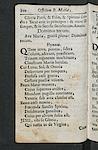 Officium B. Mariæ,
Gloria Patri, & Filio, & Spiritui San-
Sicut erat in principio & nunc & sem-
per, & in sæcula sæculorum. Amen.
Dominus tecum.
Ave Maria, gratia plena: Dominus
Hymnus.
Quem terra, pontus, sidera
Colunt, adorant, prædicant,
Trinam regentem machinam
Claustrum Mariæ bajulat.
Cui Luna, Sol, & omnia
Deserviunt per tempora,
Perfusa cæli gratia
Gestant puellæ viscera.
Beata Mater munere,
Cujus supernus artifex
Mundum pugillo continens
Ventris sub arca clausus est.
Beata cæli nuntio,
Fœcunda Sancto Spiritu,
Desideratus gentibus
Cujus per alvum fusus est.
Jesu, tibi sit gloria,
Qui natus es de Virgine,